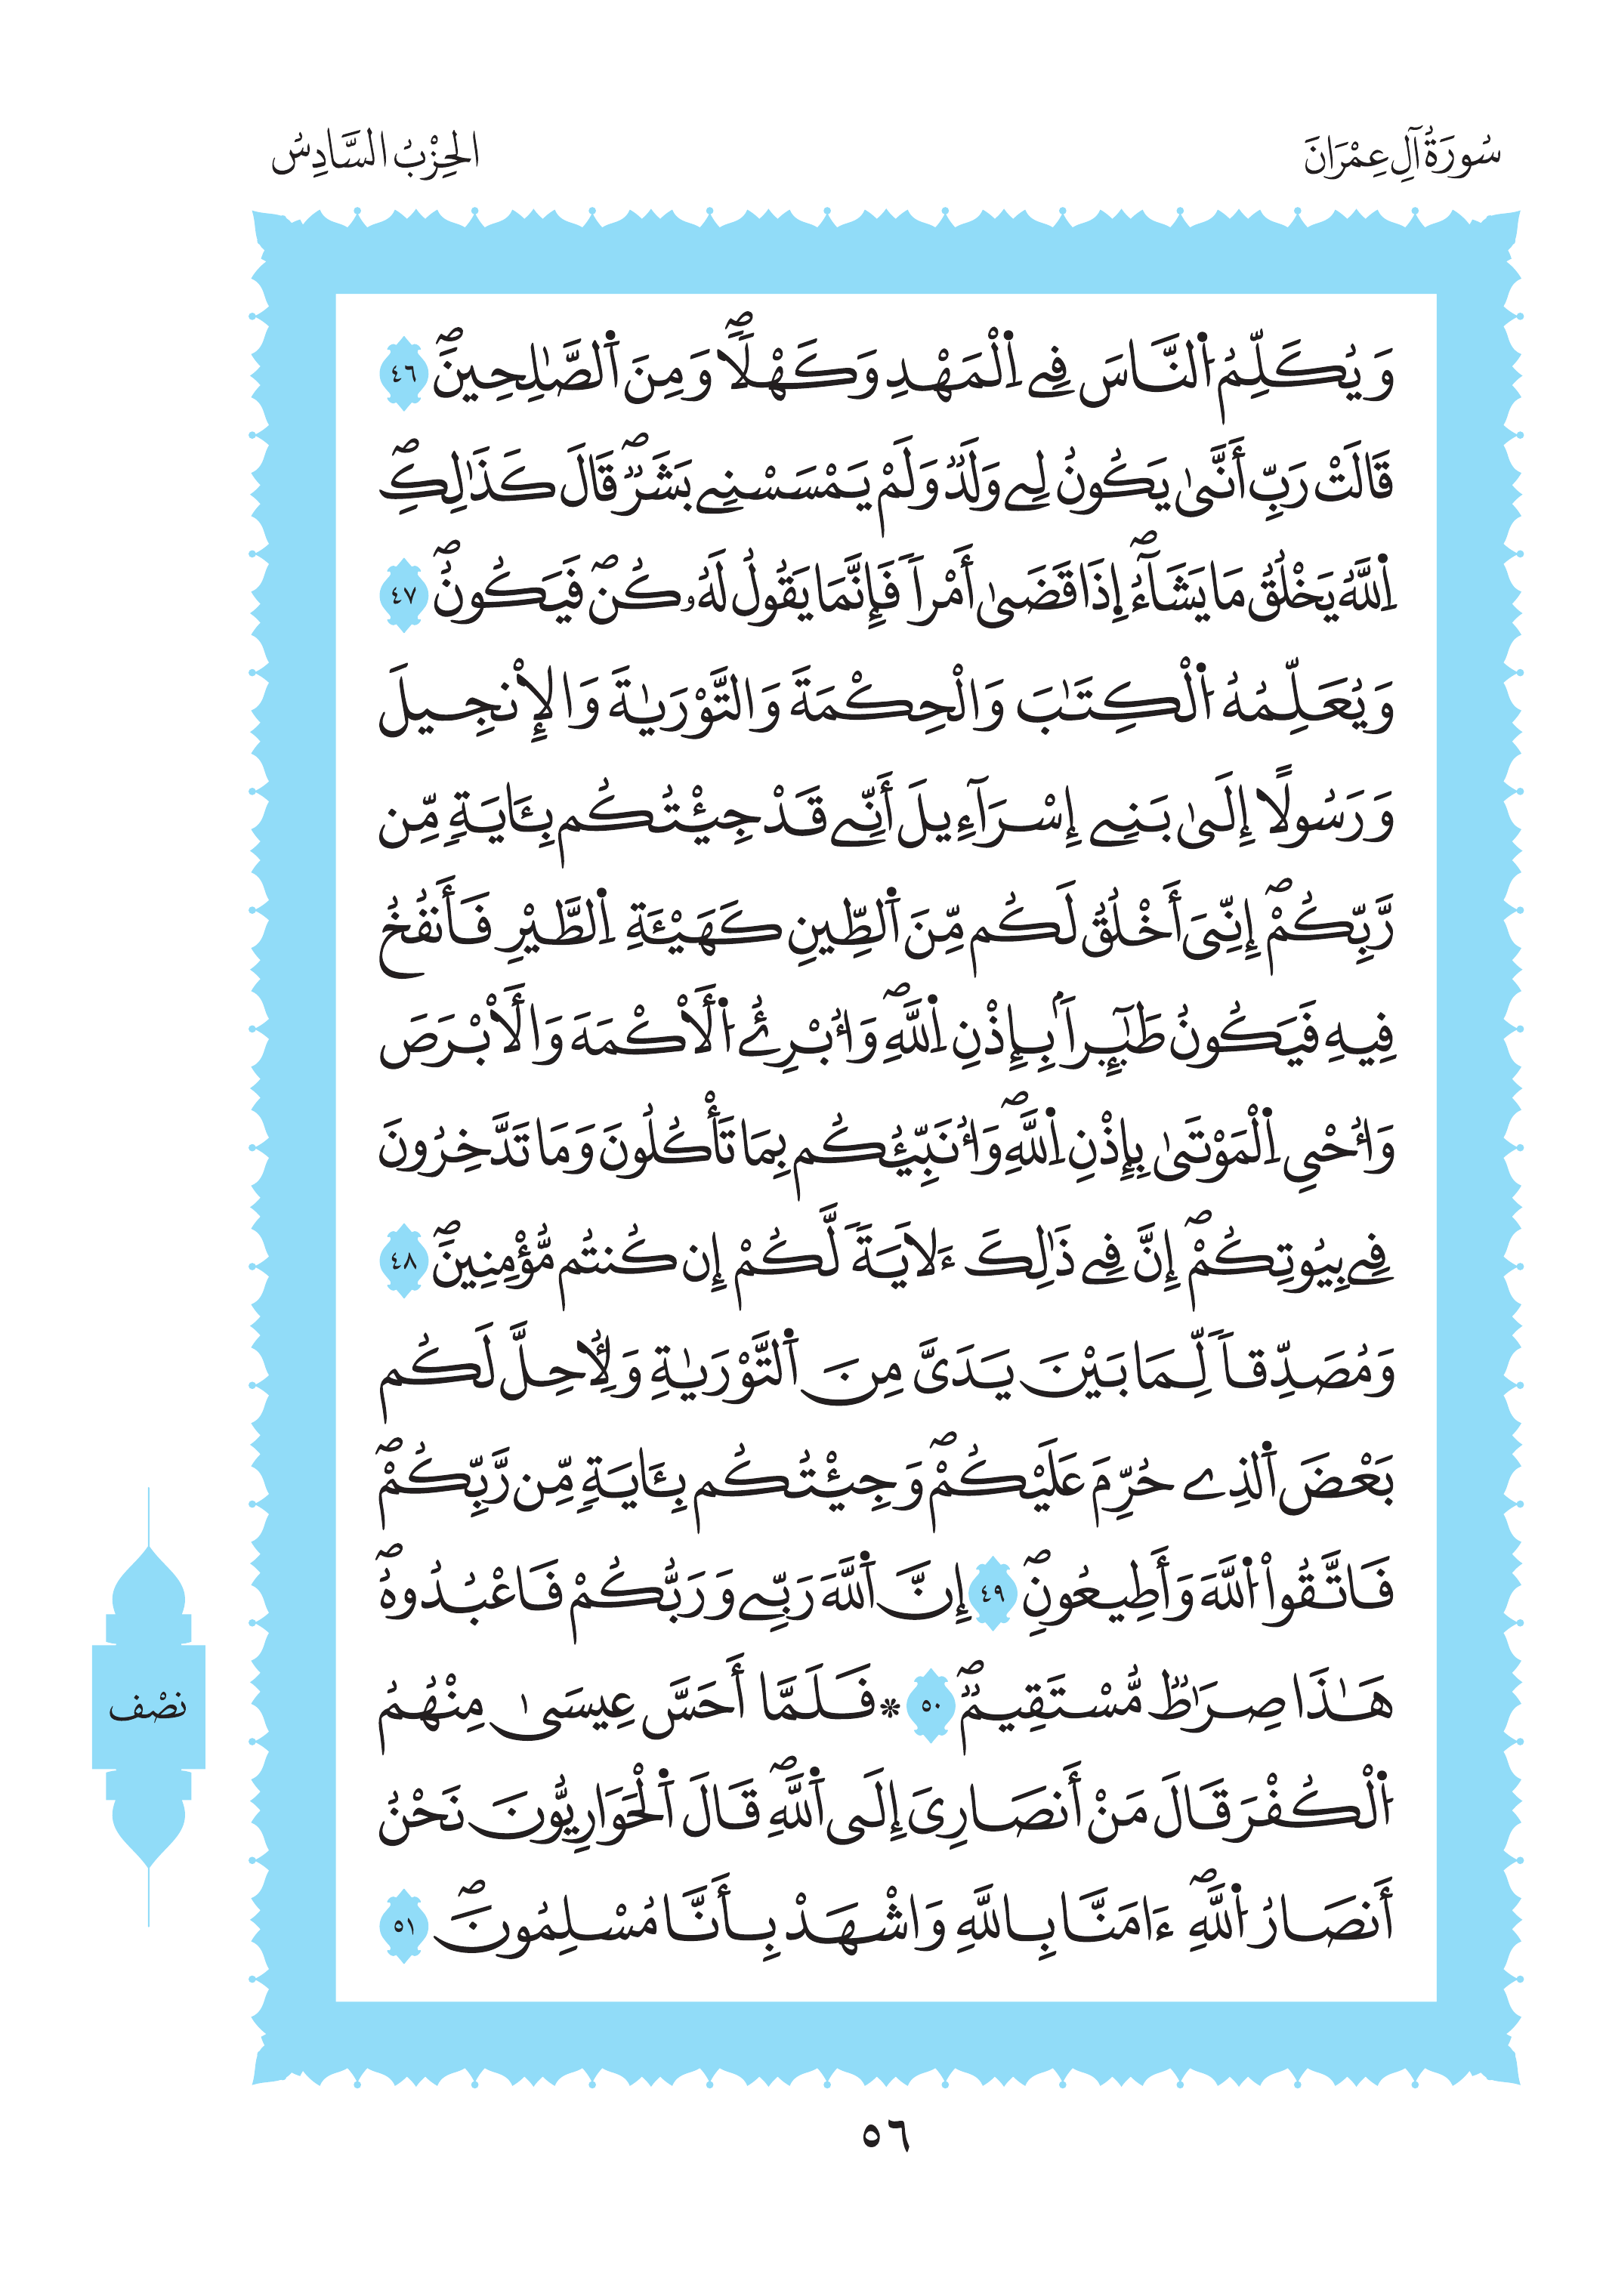 سُورَةُ آلِ عِمْرَانَ
الحِزْبُ السَّادِسُ
وَيُكَلِّمُ اُ۬لنَّاسَ فِے اِ۬لْمَهْدِ وَكَهْلاٗۖ وَمِنَ اَ۬لصَّٰلِحِينَۖ ٤٦
قَالَتْ رَبِّ أَنَّىٰ يَكُونُ لِے وَلَدٞ وَلَمْ يَمْسَسْنِے بَشَرٞۖ قَالَ كَذَٰلِكِۖ
اِ۬للَّهُ يَخْلُقُ مَا يَشَآءُۖ اِ۪ذَا قَضَىٰ أَمْراٗ فَإِنَّمَا يَقُولُ لَهُۥ كُنۖ فَيَكُونُۖ ٤٧
وَيُعَلِّمُهُ اُ۬لْكِتَٰبَ وَالْحِكْمَةَ وَالتَّوْرَيٰةَ وَالإِنْجِيلَ
وَرَسُولًا إِلَىٰ بَنِے إِسْرَآءِيلَ أَنِّے قَدْ جِئْتُكُم بِـَٔايَةٖ مِّن
رَّبِّكُمْۖ إِنِّيَ أَخْلُقُ لَكُم مِّنَ اَ۬لطِّينِ كَهَيْـَٔةِ اِ۬لطَّيْرِ فَأَنفُخُ
فِيهِ فَيَكُونُ طَٰٓئِراَۢ بِإِذْنِ اِ۬للَّهِۖ وَأُبْرِۓُ اُ۬لَاكْمَهَ وَالَابْرَصَ
وَأُحْيِ اِ۬لْمَوْتَىٰ بِإِذْنِ اِ۬للَّهِۖ وَأُنَبِّئُكُم بِمَا تَأْكُلُونَ وَمَا تَدَّخِرُونَ
فِے بِيُوتِكُمْۖ إِنَّ فِے ذَٰلِكَ ءَلَايَةٗ لَّكُمْ إِن كُنتُم مُّؤْمِنِينَۖ ٤٨
وَمُصَدِّقاٗ لِّمَا بَيْنَ يَدَيَّ مِنَ اَ۬لتَّوْرَيٰةِ وَلِأُحِلَّ لَكُم
بَعْضَ اَ۬لذِے حُرِّمَ عَلَيْكُمْۖ وَجِئْتُكُم بِـَٔايَةٖ مِّن رَّبِّكُمْۖ
فَاتَّقُواْ اُ۬للَّهَ وَأَطِيعُونِۖ ٤٩ إِنَّ اَ۬للَّهَ رَبِّے وَرَبُّكُمْ فَاعْبُدُوهُۖ
هَٰذَا صِرَٰطٞ مُّسْتَقِيمٞۖ ٥٠ ۞ فَلَمَّا أَحَسَّ عِيسَىٰ مِنْهُمُ
اُ۬لْكُفْرَ قَالَ مَنْ أَنصَارِيَ إِلَى اَ۬للَّهِۖ قَالَ اَ۬لْحَوَارِيُّونَ نَحْنُ
أَنصَارُ اُ۬للَّهِۖ ءَامَنَّا بِاللَّهِ وَاشْهَدْ بِأَنَّا مُسْلِمُونَۖ ٥١
نصْف
٥٦